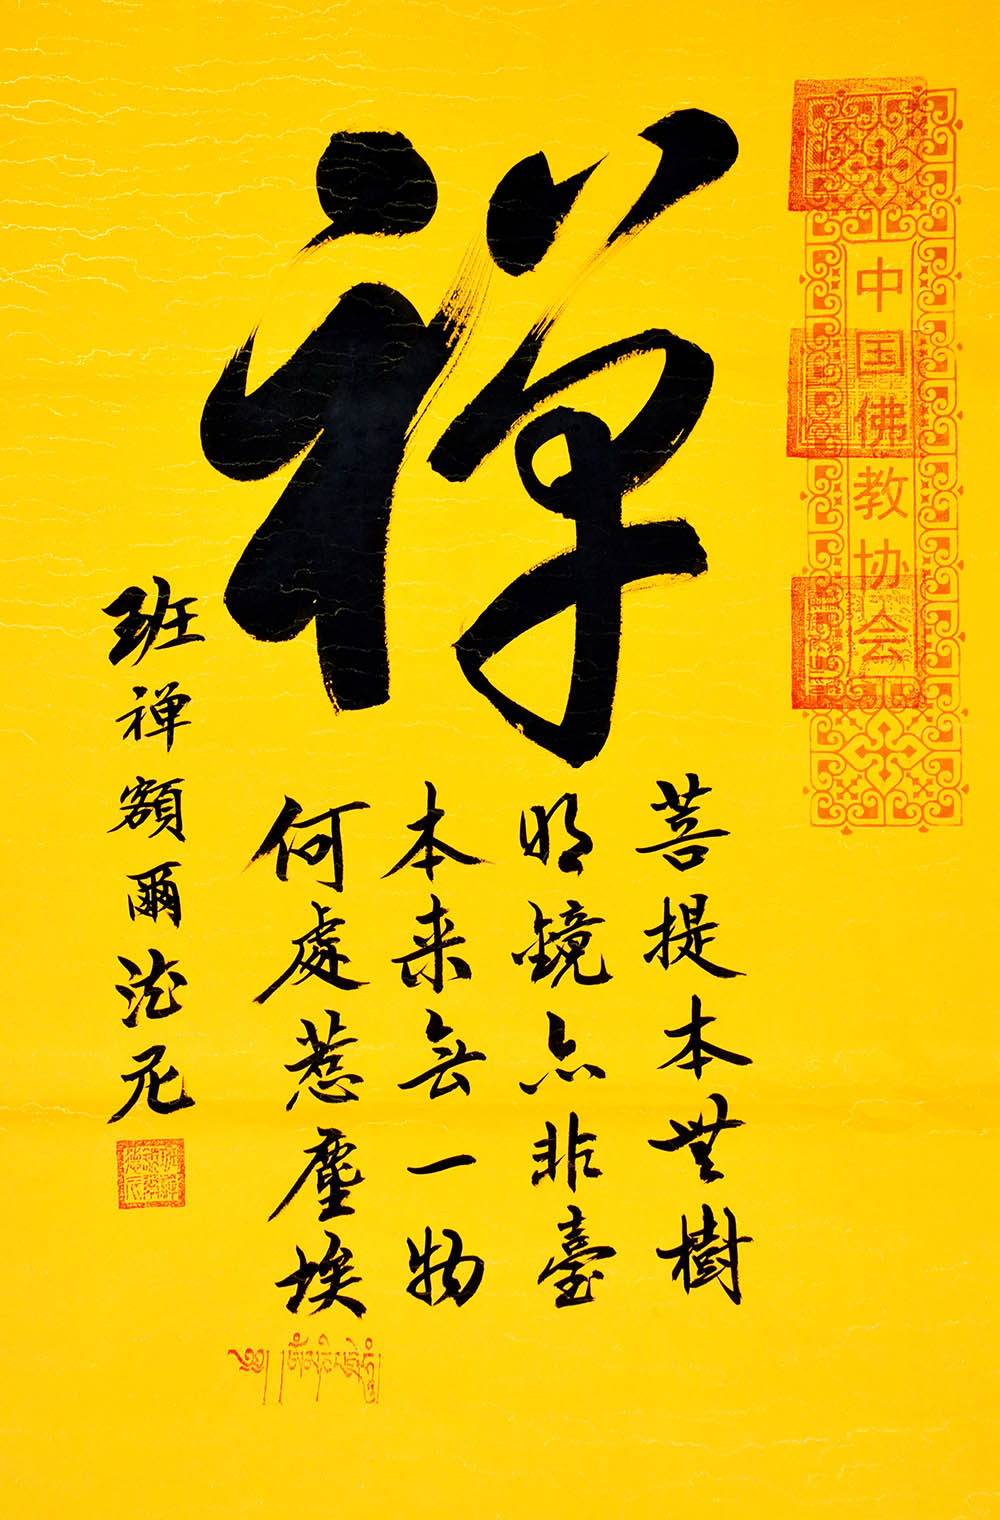 中国佛教协会
禅
菩提本無樹
明鏡亦非臺
本来無一物
何處惹塵埃
班禅額爾德尼
༄༅། །ཨོཾ་མ་ཎི་པདྨེ་ཧཱུྃ།